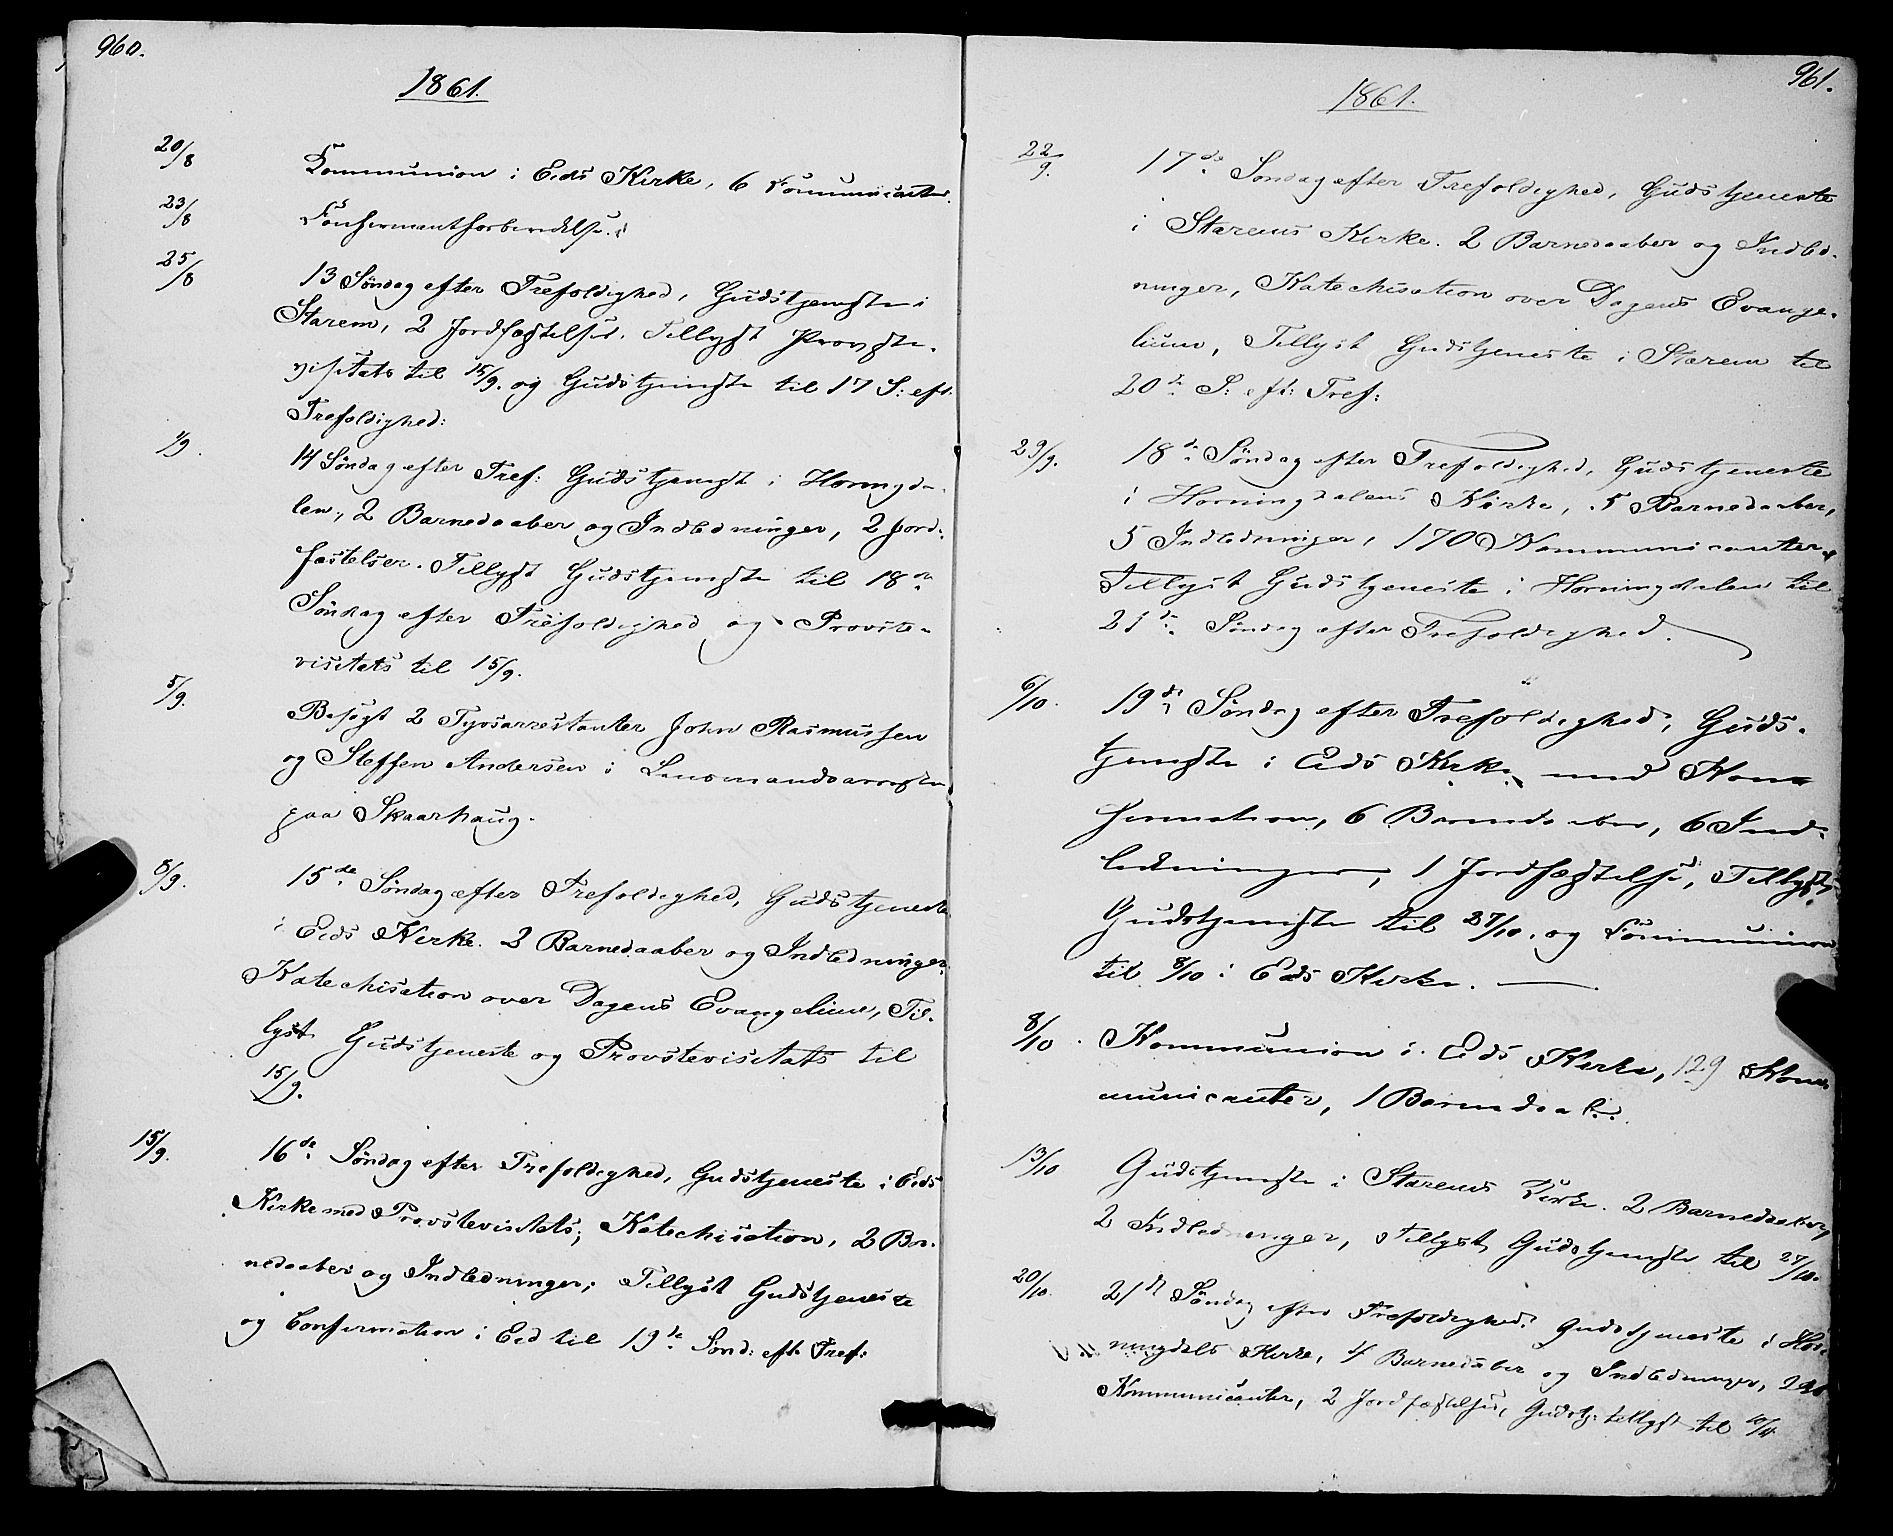 960.
1861.
20/8 Kommunion i Eids Kirke, 6 Communicanter.
23/8 Confirmantforberedelse.
25/8 13 Søndag efter Trefoldighed, Gudstjeneste i
Starem, 2 Jordfæstelser. Tillyst Provste-
visitats til 15/9. og Gudstjeneste til 17 S: eft:
Trefoldighed:
1/9. 14 Søndag efter Tref: Gudstjenest i Hornigda-
len, 2 Barnedaaber og Indledninger, 2 Jord-
fæstelser. Tillyst Gudstjeneste til 18de
Søndag efter Trefoldighed og Provste-
visitats til 15/9.
5/9. Besøgt 2 Tyvsarrestanter John Rasmussen
og Steffen Andersen i Lensmandsarresten
paa Skaarhaug.
8/9. 15de Søndag efter Trefoldighed, Gudstjeneste
i Eids Kirke. 2 Barnedaaber og Indledninger.
Katechisation over Dagens Evangelium, Til-
lyst Gudstjeneste og Provstevisitats til
15/9.
15/9. 16de Søndag efter Trefoldighed, Gudstjeneste i Eids
Kirke med Provstevisitats, Katechisation, 2 Bar-
nedaaber og Indledninger; Tillyst Gudstjeneste
og Confirmation i Eid til 19de Sønd: eft. Tref:
961.
1861.
22/9. 17de Søndag efter Trefoldighed, Gudstjeneste
i Starems Kirke. 2 Barnedaaber og Indled-
ninger, Katechisation over Dagens Evange-
lium, Tillyst Gudstjeneste i Starem til
20de S: eft: Tref:
29/9. 18de Søndag efter Trefoldighed, Gudstjeneste
i Horningdalens Kirke, 5 Barnedaaber,
5 Indledninger, 170 Kommunicanter,
Tillyst Gudstjeneste i Horningdalen til
21de Søndag efter Trefoldighed.
6/10. 19de Søndag efter Trefoldighed, Guds-
tjeneste i Eids Kirke med Kon-
firmation, 6 Barnedaaber, 6 Ind-
ledninger, 1 Jordfæstelse, Tillyst
Gudstjeneste til 27/10. og Communion
til 8/10 i Eids Kirke.
8/10. Kommunion i Eids Kirke, 129 Kom-
municanter, 1 Barnedaab.
13/10 Gudstjeneste i Starems Kirke. 2 Barnedaaber,
2 Indledninger, Tillyst Gudstjeneste til 27/10.
20/10. 21de Søndag efter Trefoldighed. Gudstjeneste i Hor-
ningdals Kirke, 4 Barnedaaber og Indledninger,
Kommunicanter, 2 Jordfæstelser, Gudstj: tillyst til 10/11.